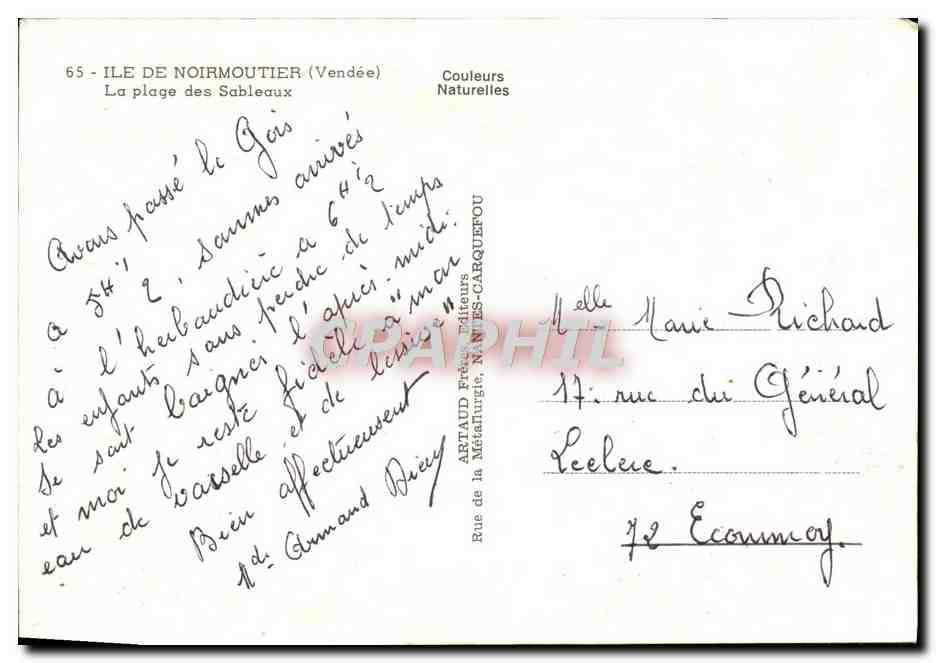 65 - ILE DE NOIRMOUTIER (Vendée)
La plage des Sableaux
Couleurs
Naturelles
Avons passé le Gois
a 5H 1/2, sommes arrivés
à l'herbaudière a 6H 1/2
Les enfants sans perdre de temps
se sont baignés l'après-midi.
et moi je reste fidèle à "mon
eau de vaisselle et de lessive"
Bien affectueusement
Md. Armand
ARTAUD Frères, Editeurs
Rue de la Métallurgie, NANTES-CARQUEFOU
CPAPHIL
Melle Marie Richard
17: rue du Général
Leclerc.
72 Ecommoy.